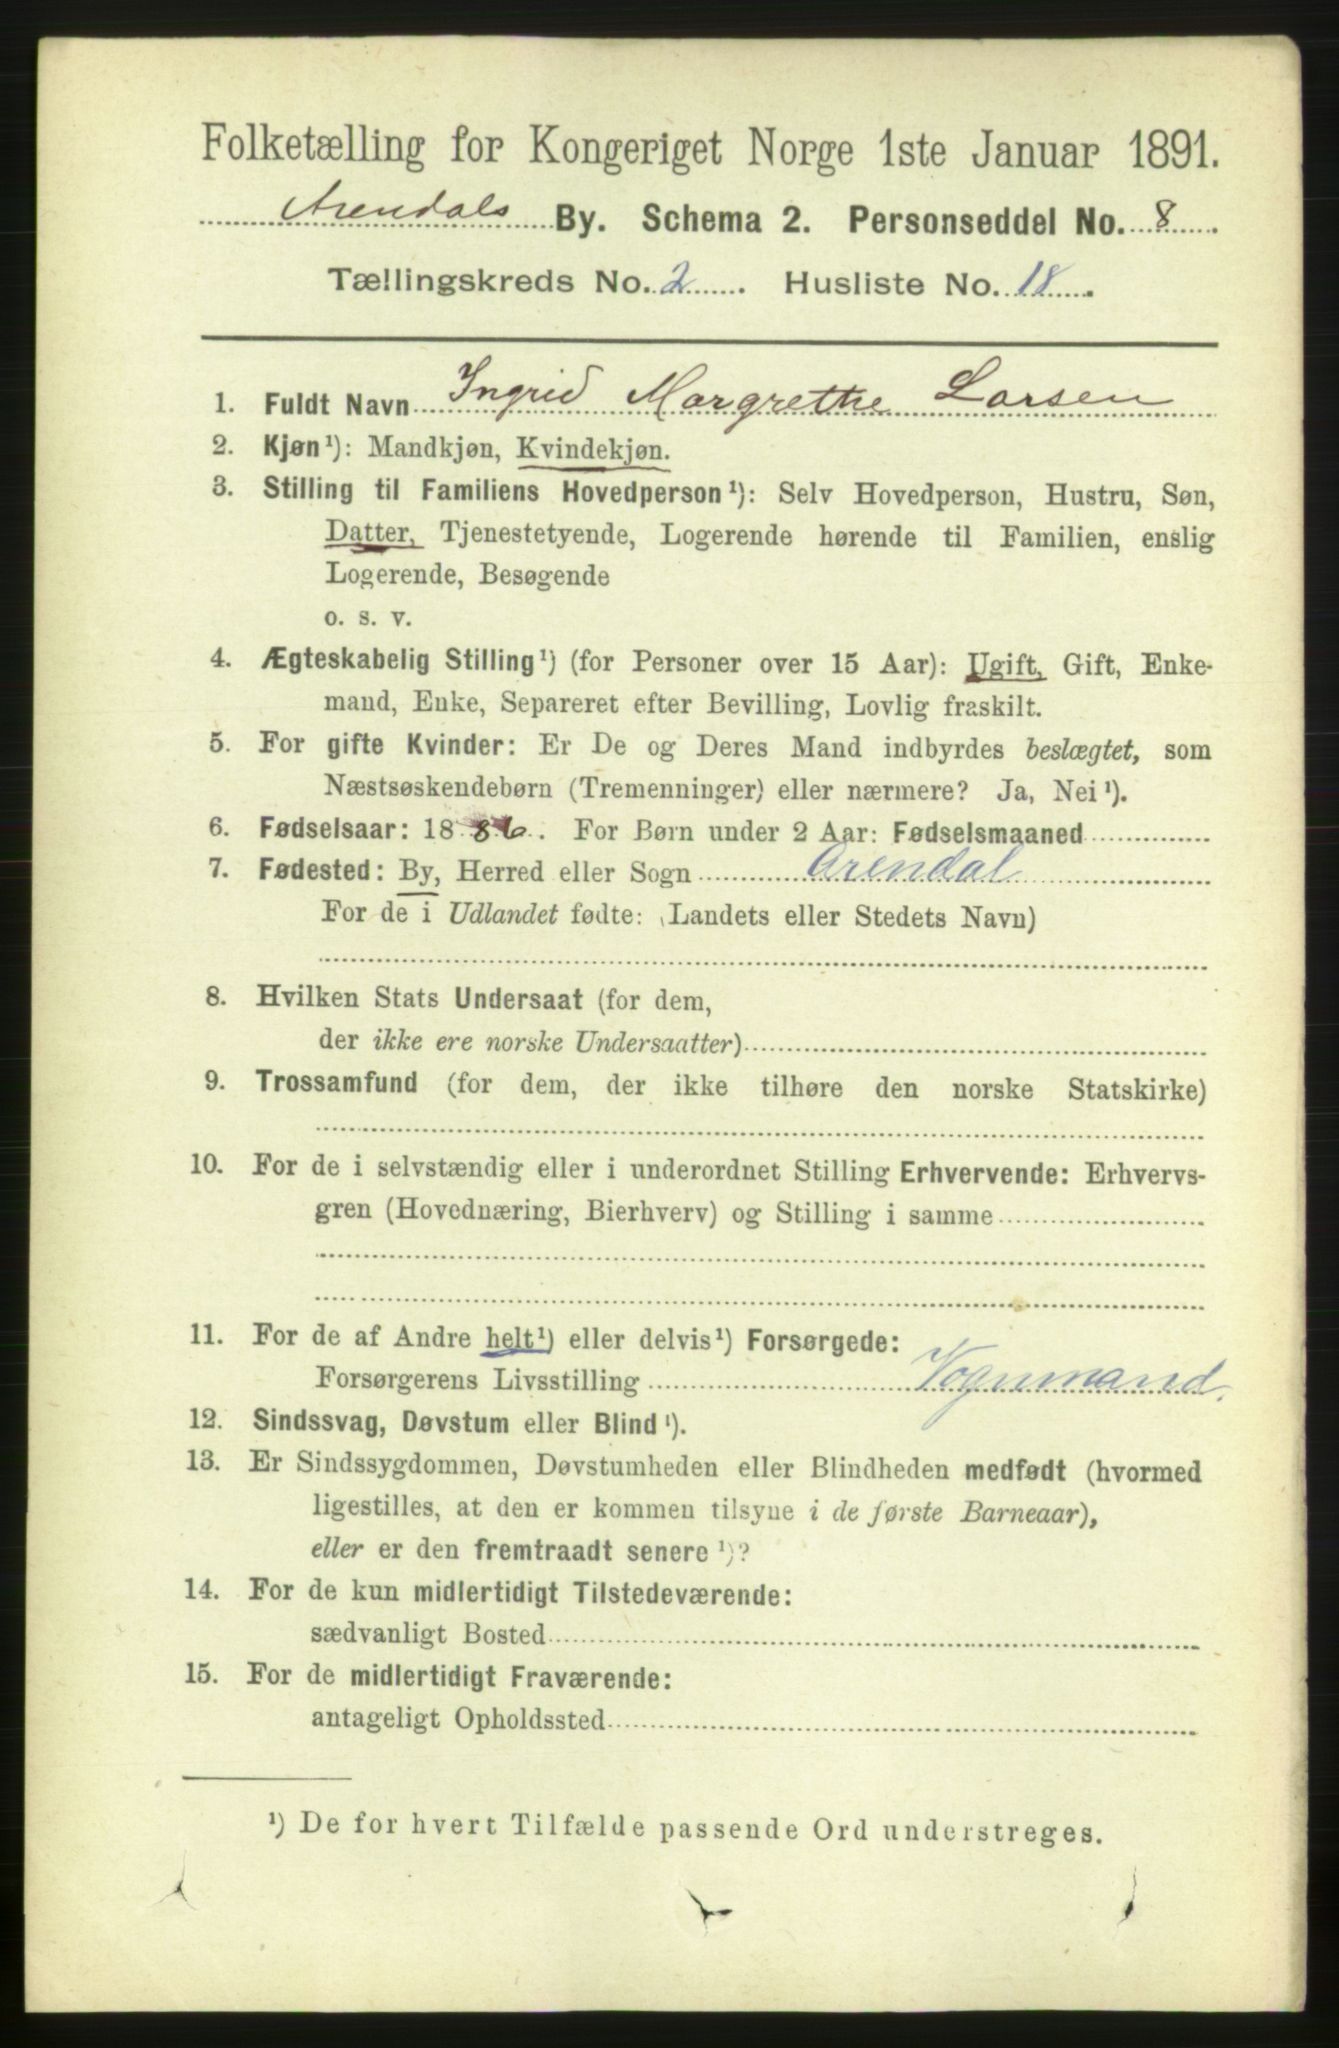 Folketælling for Kongeriget Norge 1ste Januar 1891.
Arendals By. Schema 2. Personseddel No. 8.
Tællingskreds No. 2. Husliste No. 18.
1. Fuldt Navn Ingrid Margrethe Larsen
2. Kjøn¹): Mandkjøn, Kvindekjøn.
3. Stilling til Familiens Hovedperson¹): Selv Hovedperson, Hustru, Søn,
Datter, Tjenestetyende, Logerende hørende til Familien, enslig
Logerende, Besøgende
o. s. v.
4. Ægteskabelig Stilling¹) (for Personer over 15 Aar): Ugift, Gift, Enke-
mand, Enke, Separeret efter Bevilling, Lovlig fraskilt.
5. For gifte Kvinder: Er De og Deres Mand indbyrdes beslægtet, som
Næstsøskendebørn (Tremenninger) eller nærmere? Ja, Nei¹).
6. Fødselsaar: 1886. For Børn under 2 Aar: Fødselsmaaned
7. Fødested: By, Herred eller Sogn Arendal
For de i Udlandet fødte: (Landets eller Stedets Navn)
8. Hvilken Stats Undersaat (for dem,
der ikke ere norske Undersaatter)
9. Trossamfund (for dem, der ikke tilhøre den norske Statskirke)
10. For de i selvstændig eller i underordnet Stilling Erhvervende: Erhvervs-
gren (Hovednæring, Bierhverv) og Stilling i samme
11. For de af Andre helt¹) eller delvis¹) Forsørgede:
Forsørgerens Livsstilling Vognmand.
12. Sindssvag, Døvstum eller Blind¹).
13. Er Sindssygdommen, Døvstumheden eller Blindheden medfødt (hvormed
ligestilles, at den er kommen tilsyne i de første Barneaar),
eller er den fremtraadt senere¹)?
14. For de kun midlertidigt Tilstedeværende:
sædvanligt Bosted
15. For de midlertidigt Fraværende:
antageligt Opholdssted
¹) De for hvert Tilfælde passende Ord understreges.